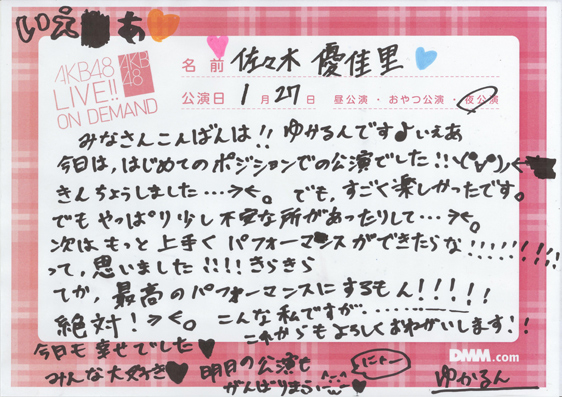 いえ あ
AKB48
LIVE!!
ON DEMAND
AKB
48
名前 佐々木 優佳里
公演日 1月27日 昼公演・おやつ公演・夜公演
みなさんこんばんは!! ゆかるんです♪いぇあ
今日は、はじめてのポジションでの公演でした!!\(°∀°)/←
きんちょうしました…><。 でも、すごく楽しかったです。
でもやっぱり少し不安な所があったりして…><。
次はもっと上手くパフォーマンスができたらな!!!!!!!!
って、思いました!!!!きらきら
てか、最高のパフォーマンスにするもん!!!!!
絶対!><。 こんな私ですが…………
これからもよろしくおねがいします!!
今日も幸せでした♥
みんな大好き♥ 明日の公演も
がんばりまふ ♥
にゃー
ゆかるん
DMM.com